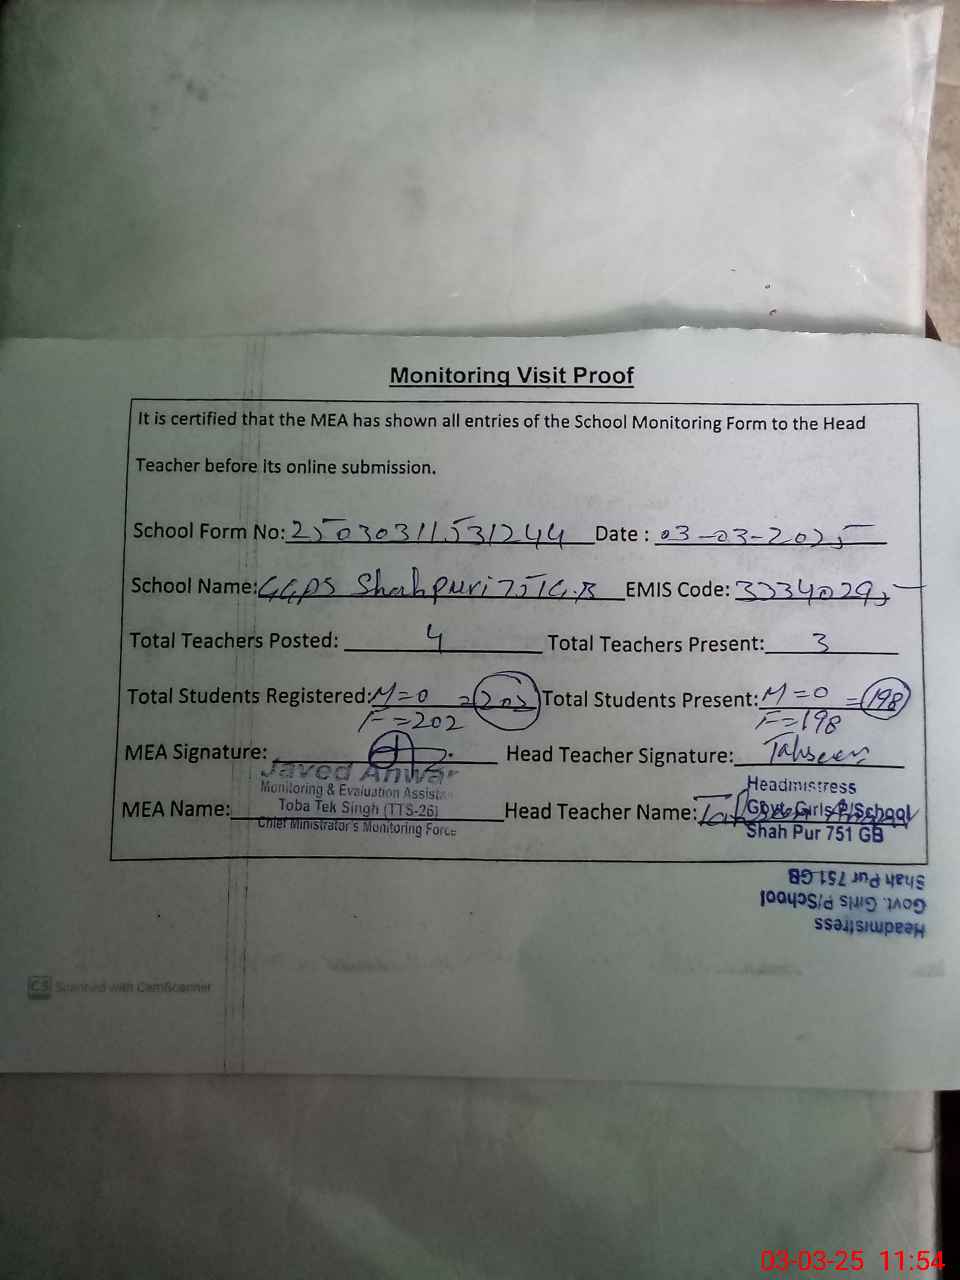 Monitoring Visit Proof
It is certified that the MEA has shown all entries of the School Monitoring Form to the Head
Teacher before its online submission.
School Form No: 25030311531244 Date : 03-03-2025
School Name: GGPS Shahpur 751 G.B EMIS Code: 33340295
Total Teachers Posted: 4 Total Teachers Present: 3
Total Students Registered: M=0 =202 Total Students Present: M=0 =198
F=202 F=198
MEA Signature: Head Teacher Signature: Tahseen
Javed Anwar
Monitoring & Evaluation Assistant
Toba Tek Singh (TTS-26)
Chief Minister's Monitoring Force
MEA Name: Head Teacher Name: Tahseen
Headmistress
Govt. Girls P/School
Shah Pur 751 GB
Headmistress
Govt. Girls P/School
Shah Pur 751 GB
CS Scanned with CamScanner
03-03-25 11:54